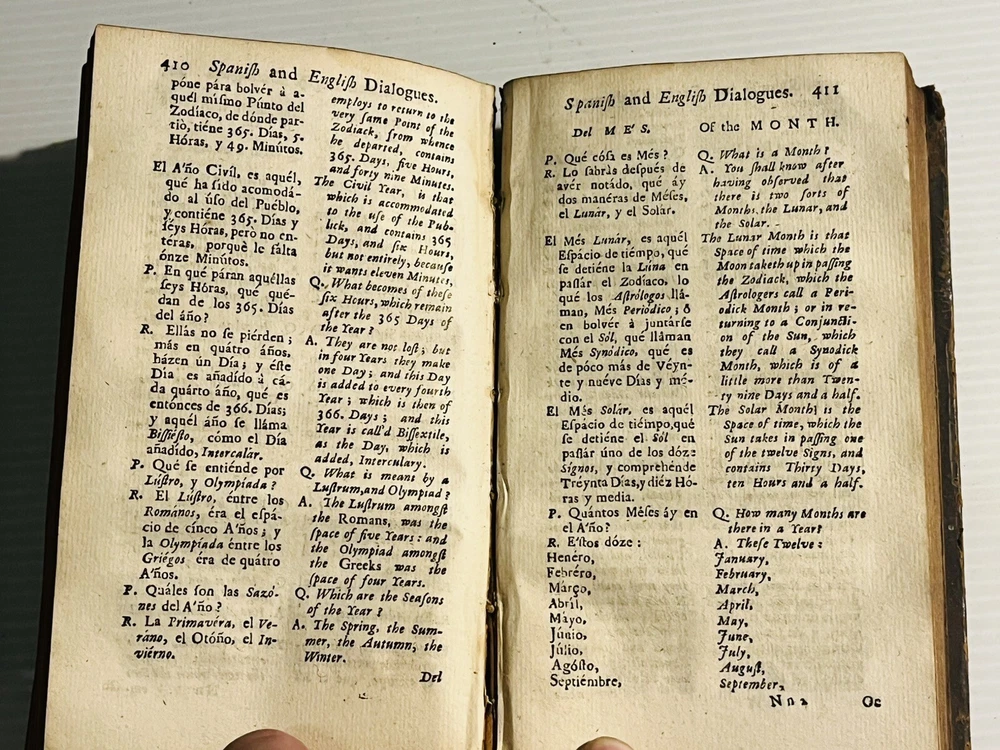 410 Spaniſh and Engliſh Dialogues.
póne pára bolvér à a-
quél miſmo Púnto del
Zodíaco, de dónde par-
tiò, tiéne 365. Días, 5.
Hóras, y 49. Minútos.
El A'ño Civíl, es aquél,
qué ha ſido acomodá-
do al úſo del Puéblo,
y contiéne 365. Días y
ſéys Hóras, però no en-
téras, porquè le fálta
ónze Minútos.
P. En qué páran aquéllas
ſeys Hóras, qué qué-
dan de los 365. Días
del áño?
R. Ellás no ſe piérden;
más en quátro áños,
házen ún Día; y éſte
Día es añadído à cá-
da quárto áño, qué es
entónces de 366. Días;
y aquél áño ſe lláma
Biſſiéſto, cómo el Día
añadído, Intercalár.
P. Qué ſe entiénde por
Lúſtro, y Olympíada?
R. El Lúſtro, éntre los
Romános, éra el eſpá-
cio de cínco A'ños; y
la Olympíada éntre los
Griégos éra de quátro
A'ños.
P. Quáles ſon las Sazó-
nes del A'ño?
R. La Primavéra, el Ve-
ráno, el Otóño, el In-
viérno.
employs to return to the
very ſame Point of the
Zodiack, from whence
he departed, contains
365. Days, five Hours,
and forty nine Minutes.
The Civil Year, is that
which is accommodated
to the uſe of the Pub-
lick, and contains 365
Days, and ſix Hours,
but not entirely, becauſe
it wants eleven Minutes,
Q. What becomes of theſe
ſix Hours, which remain
after the 365 Days of
the Year?
A. They are not loſt; but
in four Years they make
one Day; and this Day
is added to every fourth
Year; which is then of
366. Days; and this
Year is call'd Biſſextile,
as the Day, which is
added, Interculary.
Q. What is meant by a
Luſtrum, and Olympiad?
A. The Luſtrum amongſt
the Romans, was the
ſpace of five Years: and
the Olympiad amongſt
the Greeks was the
ſpace of four Years.
Q. Which are the Seaſons
of the Year?
A. The Spring, the Sum-
mer, the Autumn, the
Winter.
Del
Spaniſh and Engliſh Dialogues. 411
Del ME'S.
P. Qué cóſa es Més?
R. Lo ſabràs deſpués de
avér notádo, qué áy
dos manéras de Méſes,
el Lunár, y el Solár.
El Més Lunár, es aquél
Eſpácio de tiémpo, qué
ſe detiéne la Lúna en
paſſár el Zodíaco, lo
qué los Aſtrólogos llá-
man, Més Periódico; ò
en bolvér à juntárſe
con el Sól, qué lláman
Més Synódico, qué es
de póco más de Véyn-
te y nuéve Días y mé-
dio.
El Més Solár, es aquél
Eſpácio de tiémpo, qué
ſe detiéne el Sól en
paſſár úno de los dóze
Sígnos, y comprehénde
Tréynta Días, y diéz Hó-
ras y media.
P. Quántos Méſes áy en
el A'ño?
R. E'ſtos dóze:
Henéro,
Febréro,
Março,
Abríl,
Máyo,
Júnio,
Júlio,
Agóſto,
Septiémbre,
Of the MONTH.
Q. What is a Month?
A. You ſhall know after
having obſerved that
there is two ſorts of
Months, the Lunar, and
the Solar.
The Lunar Month is that
Space of time which the
Moon taketh up in paſſing
the Zodiack, which the
Aſtrologers call a Peri-
odick Month; or in re-
turning to a Conjuncti-
on of the Sun, which
they call a Synodick
Month, which is of a
little more than Twen-
ty nine Days and a half.
The Solar Month is the
Space of time, which the
Sun takes in paſſing one
of the twelve Signs, and
contains Thirty Days,
ten Hours and a half.
Q. How many Months are
there in a Year?
A. Theſe Twelve:
January,
February,
March,
April,
May,
June,
July,
Auguſt,
September,
Nn2 Oc